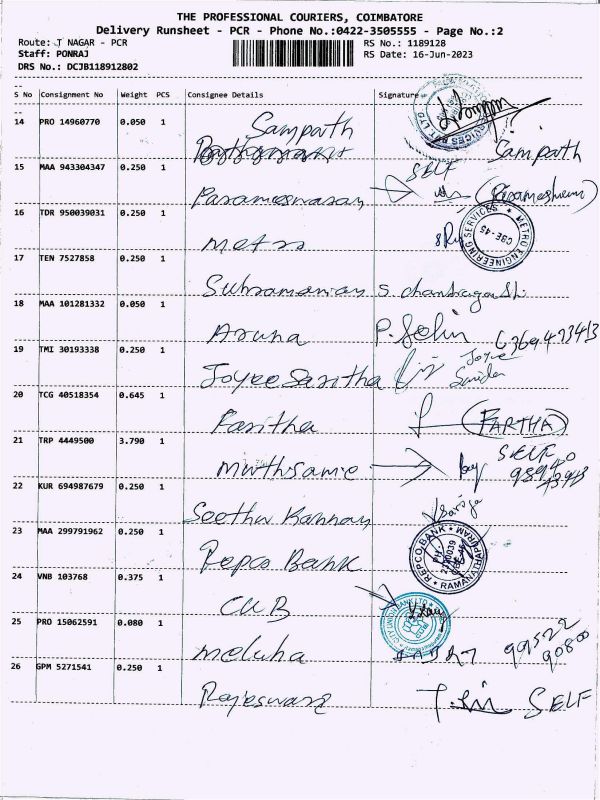 THE PROFESSIONAL COURIERS, COIMBATORE
Delivery Runsheet - PCR - Phone No.:0422-3505555 - Page No.:2
Route: T NAGAR - PCR RS No.: 1189128
Staff: PONRAJ RS Date: 16-Jun-2023
DRS No.: DCJB118912802
S No Consignment No Weight PCS Consignee Details Signature
14 PRO 14960770 0.050 1 Sampath
Sampath
15 MAA 943304347 0.250 1 SELF
Parameswaran
16 TDR 950039031 0.250 1
Metro METRO ENGINEERING SERVICES CBE-45
17 TEN 7527858 0.250 1
Subramanian
18 MAA 101281332 0.050 1
Aruna
19 TMI 30193338 0.250 1 Joyce
Joyce Saritha
20 TCG 40518354 0.645 1
Paritha (PARTHA)
21 TRP 4449500 3.790 1 SELF
22 KUR 694987679 0.250 1
Seetha Kannan
23 MAA 299791962 0.250 1
Repco Bank REPCO BANK RAMANATHAPURAM
24 VNB 103768 0.375 1
CUB CITY UNION BANK LTD
25 PRO 15062591 0.080 1 99522
Meluha 90800
26 GPM 5271541 0.250 1
Rajeswari SELF